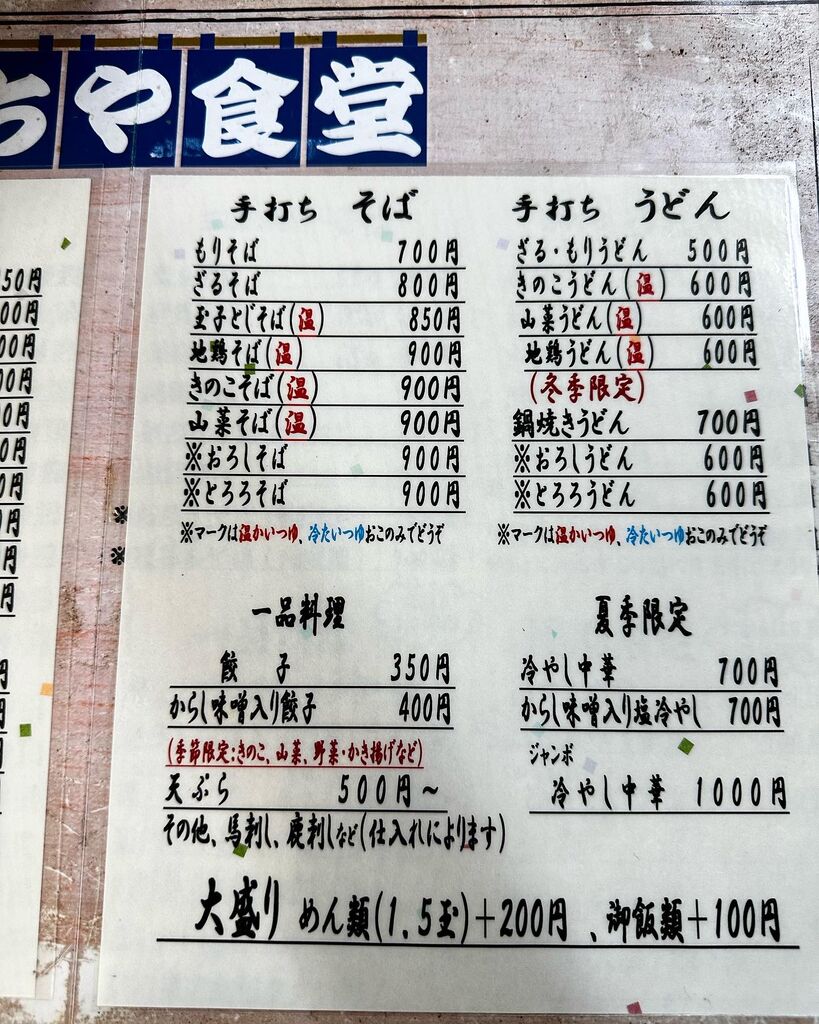 ちや食堂
手打ち そば
もりそば 700円
ざるそば 800円
玉子とじそば(温) 850円
地鶏そば(温) 900円
きのこそば(温) 900円
山菜そば(温) 900円
※おろしそば 900円
※とろろそば 900円
※マークは温かいつゆ、冷たいつゆおこのみでどうぞ
手打ち うどん
ざる・もりうどん 500円
きのこうどん(温) 600円
山菜うどん(温) 600円
地鶏うどん(温) 600円
(冬季限定)
鍋焼きうどん 700円
※おろしうどん 600円
※とろろうどん 600円
※マークは温かいつゆ、冷たいつゆおこのみでどうぞ
一品料理
餃子 350円
からし味噌入り餃子 400円
(季節限定:きのこ、山菜、野菜・かき揚げなど)
天ぷら 500円~
その他、馬刺し、鹿刺しなど(仕入れによります)
夏季限定
冷やし中華 700円
からし味噌入り塩冷やし 700円
ジャンボ
冷やし中華 1000円
大盛り めん類(1.5玉)+200円 、御飯類+100円